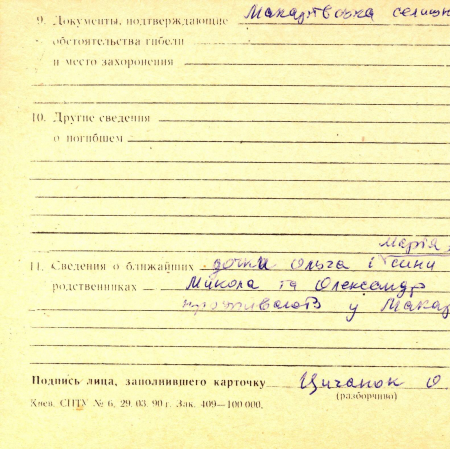 9. Документы, подтверждающие
обстоятельства гибели
и место захоронения
10. Другие сведения
о погибшем
Марія
11. Сведения о ближайших дочки Ольга і сини
родственниках Микола та Олександр
проживають у Макар
Подпись лица, заполнившего карточку Цичанок О
(разборчиво)
Киев. СПТУ № 6, 29. 03. 90 г. Зак. 409—100 000.